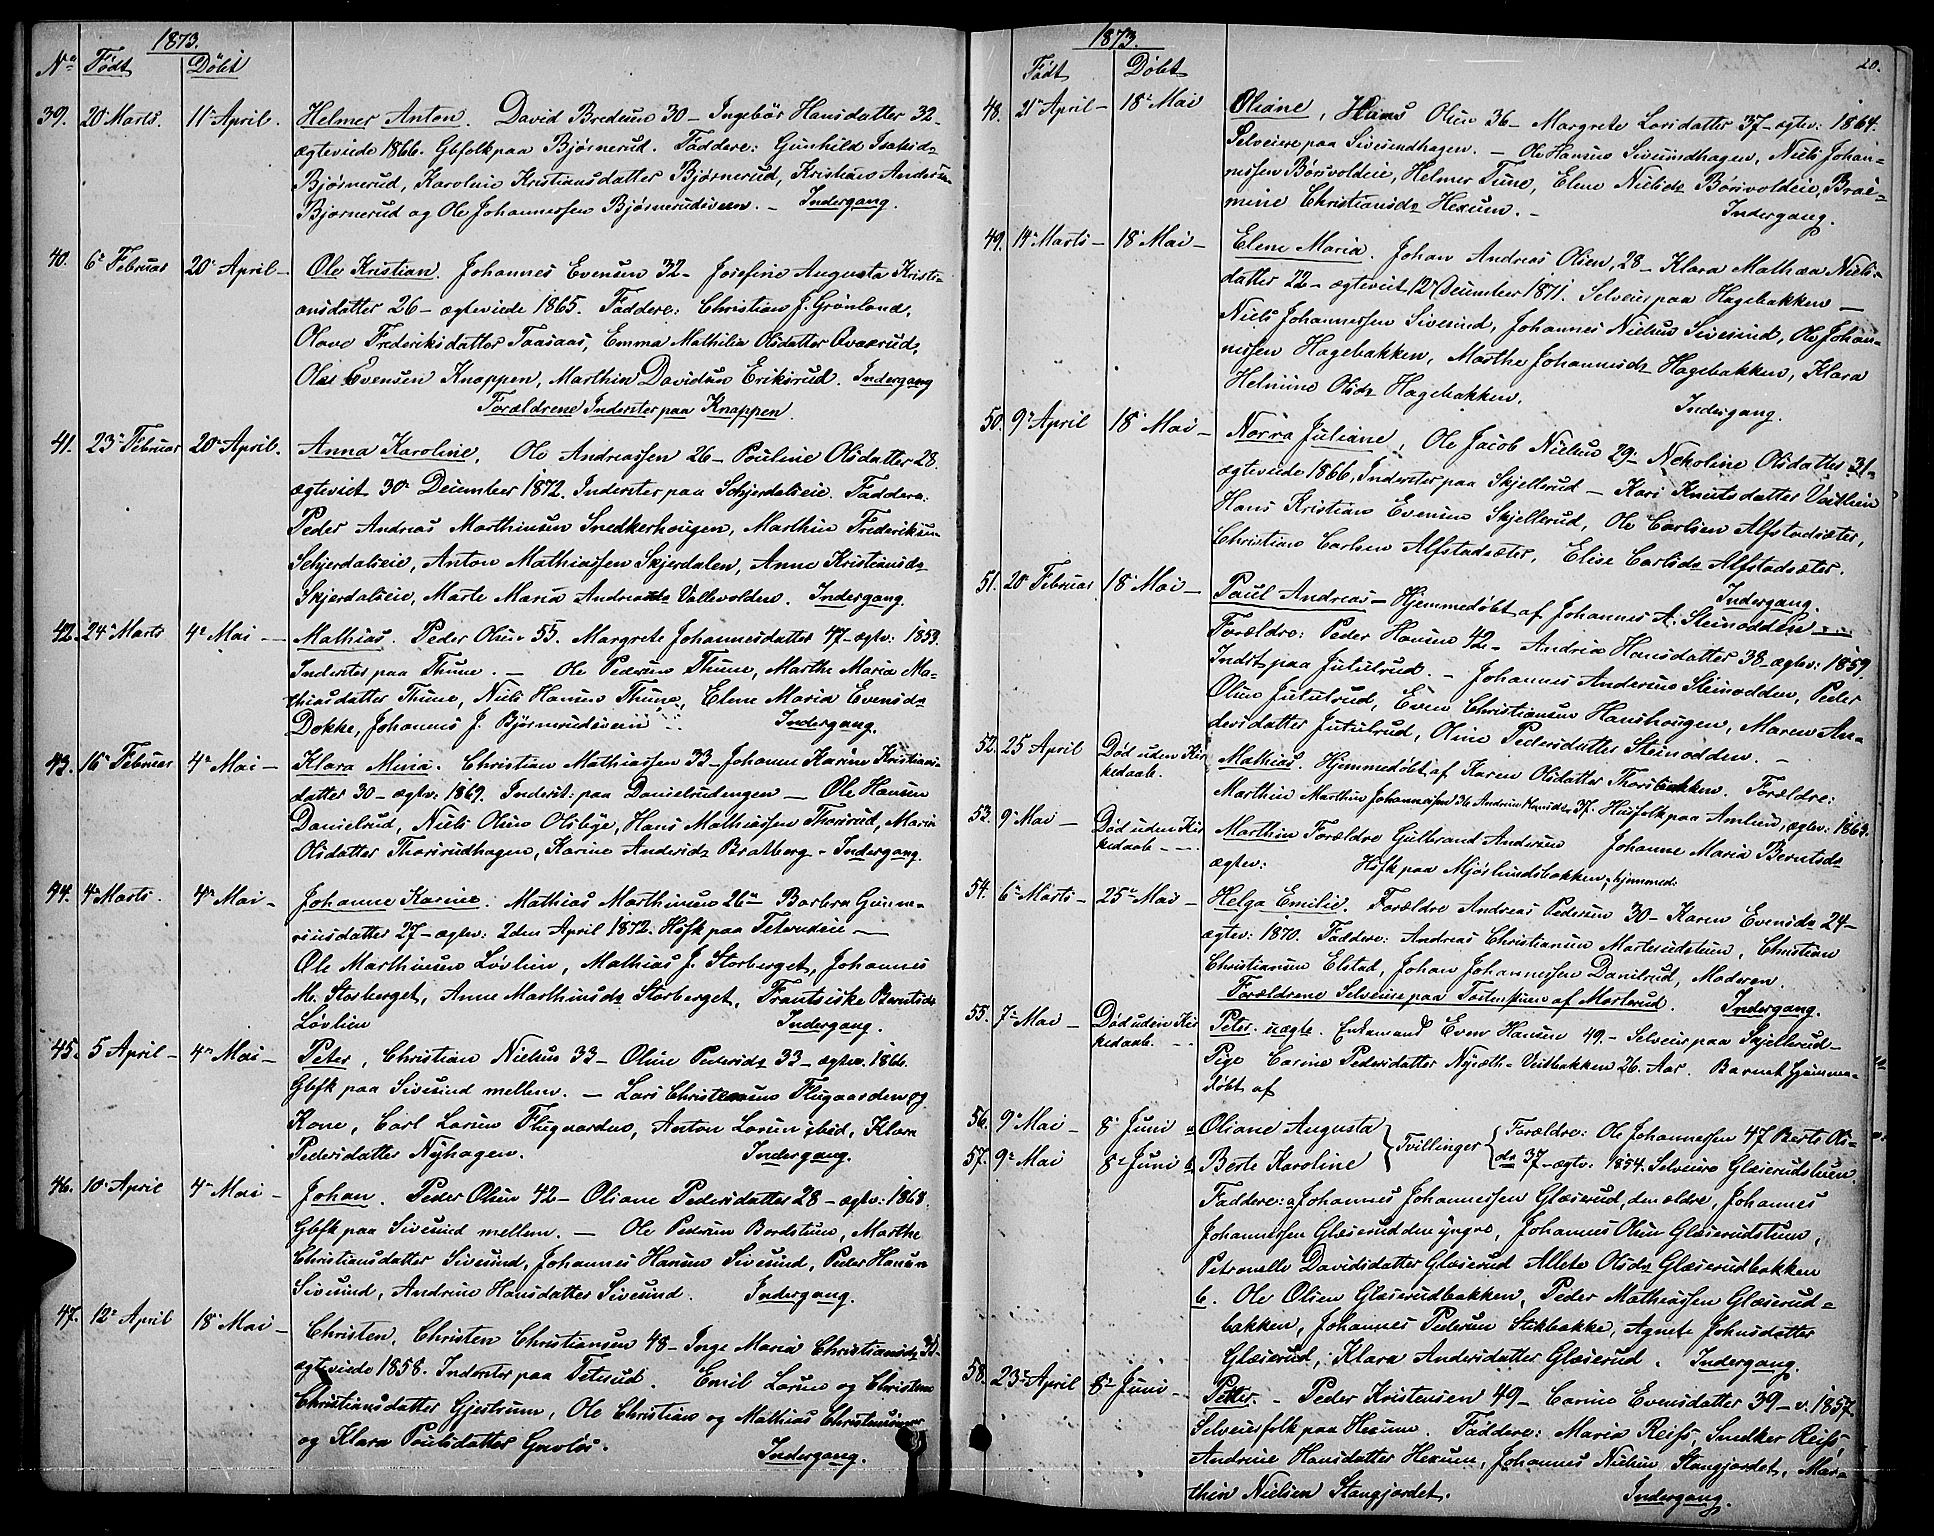 1873.
No Født Døbt
39. 20de Marts. 11te April. Helmer Anton. David Bredesen 30 - Ingebør Hansdatter 32-
ægteviede 1866. Gbfolk paa Bjørnerud. Faddere: Gunhild Isaksdr
Bjørnerud, Karoline Kristiansdatter Bjørnerud, Kristian Andersen
Bjørnerud og Ole Johannessen Bjørnerudsveen. - Indergang.
40. 6te Februar 20de April - Ole Kristian. Johannes Evensen 32- Josefine Augusta Kristi-
ansdatter 26 - ægteviede 1865. Faddere: Christian J. Grønland,
Olave Frederiksdatter Taasaas, Emma Mathilia Olsdatter Qværud,
Olai Evensen Knappen, Marthin Davidsen Eriksrud. Indergang
Forældrene Inderster paa Knappen.
41. 23de Februar 20de April. Anna Karoline. Ole Andreassen 26 - Pauline Olsdatter 28.
ægteviet 30te December 1872. Inderster paa Schjerdaleie. Faddere:
Peder Andreas Marthinsen Snedkerhougen, Marthin Frederiksen
Schjerdaleie, Anton Mathiassen Skjerdalen, Anne Kristiansdr
Skjerdaleie, Marte Maria Andreasdr Vollevolden. Indergang.
42. 24de Marts 4de Mai - Mathias. Peder Olsen 55. Margrete Johannesdatter 47 - ægtev: 1859.
Inderster paa Thune. - Ole Pedersen Thune, Marthe Maria Ma-
thiasdatter Thune, Niels Hansen Thune, Elene Maria Evensdr
Dokke, Johannes J. Bjørnerudsveen Indergang.
43. 16de Februar 4de Mai - Klara Mina. Christian Mathiassen 33 - Johanne Karine Kristians-
datter 30 - ægtev: 1869. Inderst: paa Danielrudengen - Ole Hansen
Danielrud, Niels Olsen Olsbye, Hans Mathiassen Thorsrud, Maria
Olsdatter Thorsrudhagen, Karine Andersdr Bratberg - Indergang.
44. 4de Marts. 4de Mai - Johanne Karine. Mathias Marthinsen 26 - Barbra Gunne-
riusdatter 27 - ægtev: 2den April 1872. Hsfk paa -
Ole Marthinsen Løvlien, Mathias J. Storberget, Johannes
M. Storberget, Anne Marthinsdr Storberget, Frantsiske Berntsdr
Løvlien Indergang.
45. 5 April - 4de Mai - Peter, Christian Nielsen 33 - Oline Pedersdr 33 - ægtev. 1866.
Gbfk paa Sivesind mellem. - Lars Christensen Flugaarden og
Kone, Carl Larsen Flugaarden, Anton Larsen ibid, Klara
Pedersdatter Nyhagen. Indergang.
46. 10de April 4de Mai - Johan. Peder Olsen 42 - Oliane Pedersdatter 28 - ægtev: 1868.
Gbfk paa Sivesind mellem. - Ole Pedersen Bordstuen, Marthe
Christiansdatter Sivesind, Johannes Hansen Sivesind, Peder Hansen
Sivesind, Andrine Hansdatter Sivesind. Indergang.
47. 12te April 18de Mai - Christen, Christen Christiansen 48 - Inge Maria Christiansdr 35-
ægteviede 1858. Inderster paa Teterud. Emil Larsen og Christine
Christiansdatter Gjestrum, Ole Christian og Mathias Christensønner
og Klara Poulsdatter Gaarløs. Indergang.
1873. 20.
Født Døbt
48. 21de April - 18de Mai Oliane, Hans Olsen 36 - Margrete Larsdatter 37 - ægtev: 1864.
Selveiere paa Sivesindhagen. - Ole Hansen Sivesindhagen, Niels Johan-
nessen Børsvoldeie, Helmer Tune, Elene Nielsdr Børsvoldeie, Brae-
mine Christiansdr Hexum. - Indergang.
49. 14de Marts - 18de Mai - Elene Maria. Johan Andreas Olsen, 28 - Klara Mathea Niels-
datter 22 - ægteviet 12te December 1871. Selveier paa Hagebakken -
Niels Johannessen Sivesind, Johannes Nielsen Sivesind, Ole Johan-
nessen Hagebakken, Marthe Johannesdr Hagebakken, Klara
Helmine Olsdr Hagebakken. Indergang.
50. 9de April 18de Mai - Norra Juliane, Ole Jacob Nielsen 29 - Nekoline Olsdatter 31-
ægteviede 1866, Inderster paa Skjellerud - Kari Knutsdatter Veitlien
Hans Kristian Evensen Skjellerud, Ole Carlsen Alfstadsæter,
Christian Carlsen Alfstadsæter, Elise Carlsdr Alfstadsæter.
Indergang.
51. 20de Februar 18de Mai - Paul Andreas - Hjemmedøbt af Johannes A. Steinodden
Forældre: Peder Hansen 42 - Andrea Hansdatter 38 - ægtev: 1859.
Indst paa Jutulrud. - Johannes Andersen Steinodden, Peder
Olsen Jutulrud, Even Christiansen Hanshougen, Maren An-
dersdatter Jutulrud, Oline Pedersdatter Steinodden. -
52. 25 April Død uden Kir
kedaab. Mathias. Hjemmedøbt af Karen Olsdatter Thorsbakken. Forældre:
Marthin Marthin Johannessen 36 Andrine Hansdr 37. Husfolk paa Amlien, ægtev: 1863.
53. 9de Mai - Død uden Kir
kedaab - - Marthin Forældre Gulbrand Andersen Johanne Maria Berntsdr
ægtev: Hsfk paa Mjørlundsbakken, hjemmed:
54. 6te Marts - 25de Mai - Helga Emilie. Forældre Andreas Pedersen 30 - Karen Evensdr 24-
ægtev: 1870. Faddere: Andreas Christiansen Marterudstuen, Christian
Christiansen Elstad, Johan Johannessen Danilrud, Moderen.
Forældrene Selveiere paa af Marterud. Indergang.
55. 7de Mai - Død uden Kir
kedaab. - - Peter. uægte. Enkemand Even Hansen 49. - Selveier paa Skjellerud-
Pige Carine Pedersdatter Nysæth - Veitbakken 26 Aar. Barnet hjemme-
døbt af
56. 9de Mai - 8de Juni a Oliane Augusta } Tvillinger { Forældre: Ole Johannessen 47 Berte Ols-
57. 9de Mai 8de Juni b Berte Karoline dr 37 - ægtv. 1854. Selveiere Glæserudstuen.
Faddere: a Johannes Johannessen Glæserud, den ældre, Johannes
Johannessen Glæserud den yngre, Johannes Olsen Glæserudstuen,
Petronelle Davidsdatter Glæserud Allete Olsdr Glæserudbakken
b. Ole Olsen Glæserudbakken, Peder Mathiassen Glæserud-
bakken, Johannes Pedersen Stikbakke, Agnete Johnsdatter
Glæserud, Klara Andersdatter Glæserud. Indergang.
58. 23de April 8de Juni - Petter - Peder Kristensen 49 - Carine Evensdatter 39 - v. 1857.
Selveierfolk paa Hexum. Faddere: Maria Reiss, Snedker Reiss,
Andrine Hansdatter Hexum, Johannes Nielsen Stangjordet, Mar-
thin Nielsen Stangjordet. Indergang.